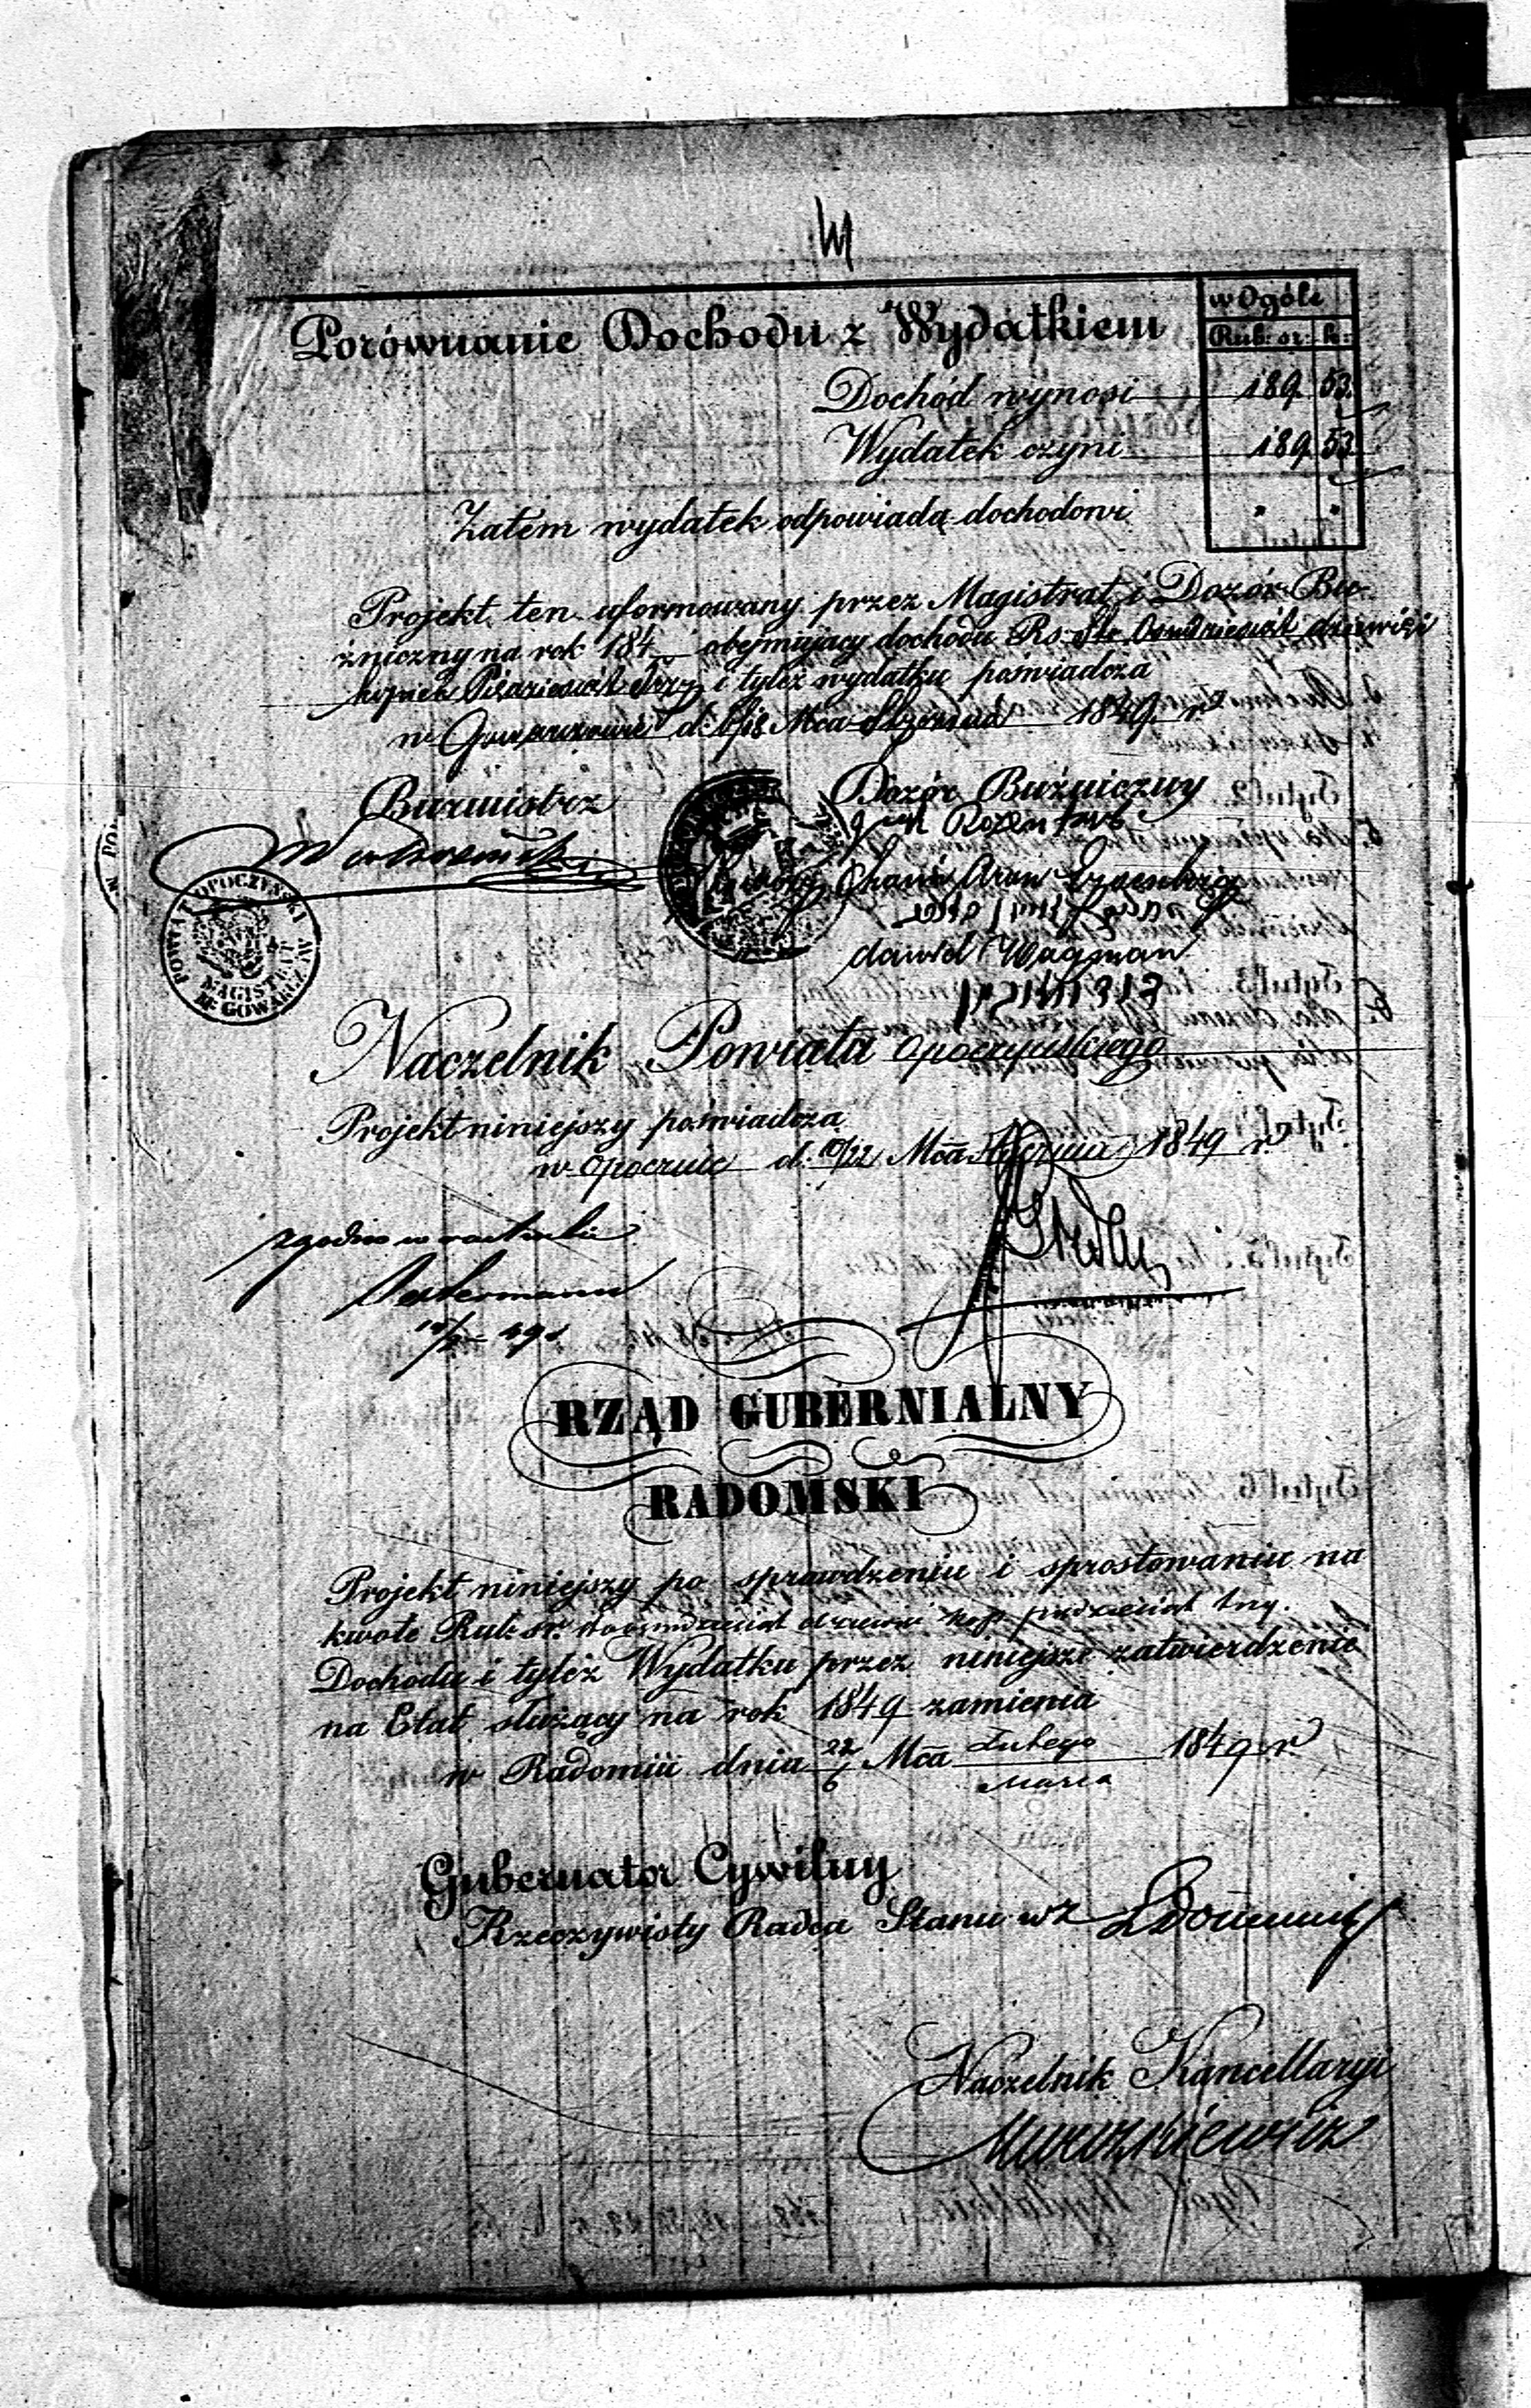 Porównanie Dochodu z Wydatkiem
w Ogóle
Rub: sr: k:
Dochód wynosi 189. 53.
Wydatek czyni 189. 53.
Zatem wydatek odpowiada dochodowi
Projekt ten uformowany przez Magistrat i Dozór Bu-
żniczny na rok 184 obejmujący dochodu Rs. Sto Osmdziesiąt dziewięć
kopiek Pięćdziesiąt Trzy i tyleż wydatku poświadcza
w d: 6/18 Mca Stycznia 1849. r.
Burmistrz
Dozór Buźniczny
Rozen
Chaim Aron
dawid Wagman
דוד וואגמאן
POWIAT OPOCZYŃSKI
MAGISTRAT
M. GOWARCZÓW
Naczelnik Powiatu Opoczyńskiego
Projekt niniejszy poświadcza
w Opocznie d. 10/22 Mca Stycznia 1849 r.
zgodno w rachunku
RZĄD GUBERNIALNY
RADOMSKI
Projekt niniejszy po sprawdzeniu i sprostowaniu na
kwotę Rub. sr. sto osmdziesiąt dziewięć kop. pięćdziesiąt trzy.
Dochodu i tyleż Wydatku przez niniejsze zatwierdzenie
na Etat służący na rok 1849 zamienia
w Radomiu dnia 22/6 Mca Lutego/Marca 1849 r.
Gubernator Cywilny
Rzeczywisty Radca Stanu wz
Naczelnik Kancellaryi